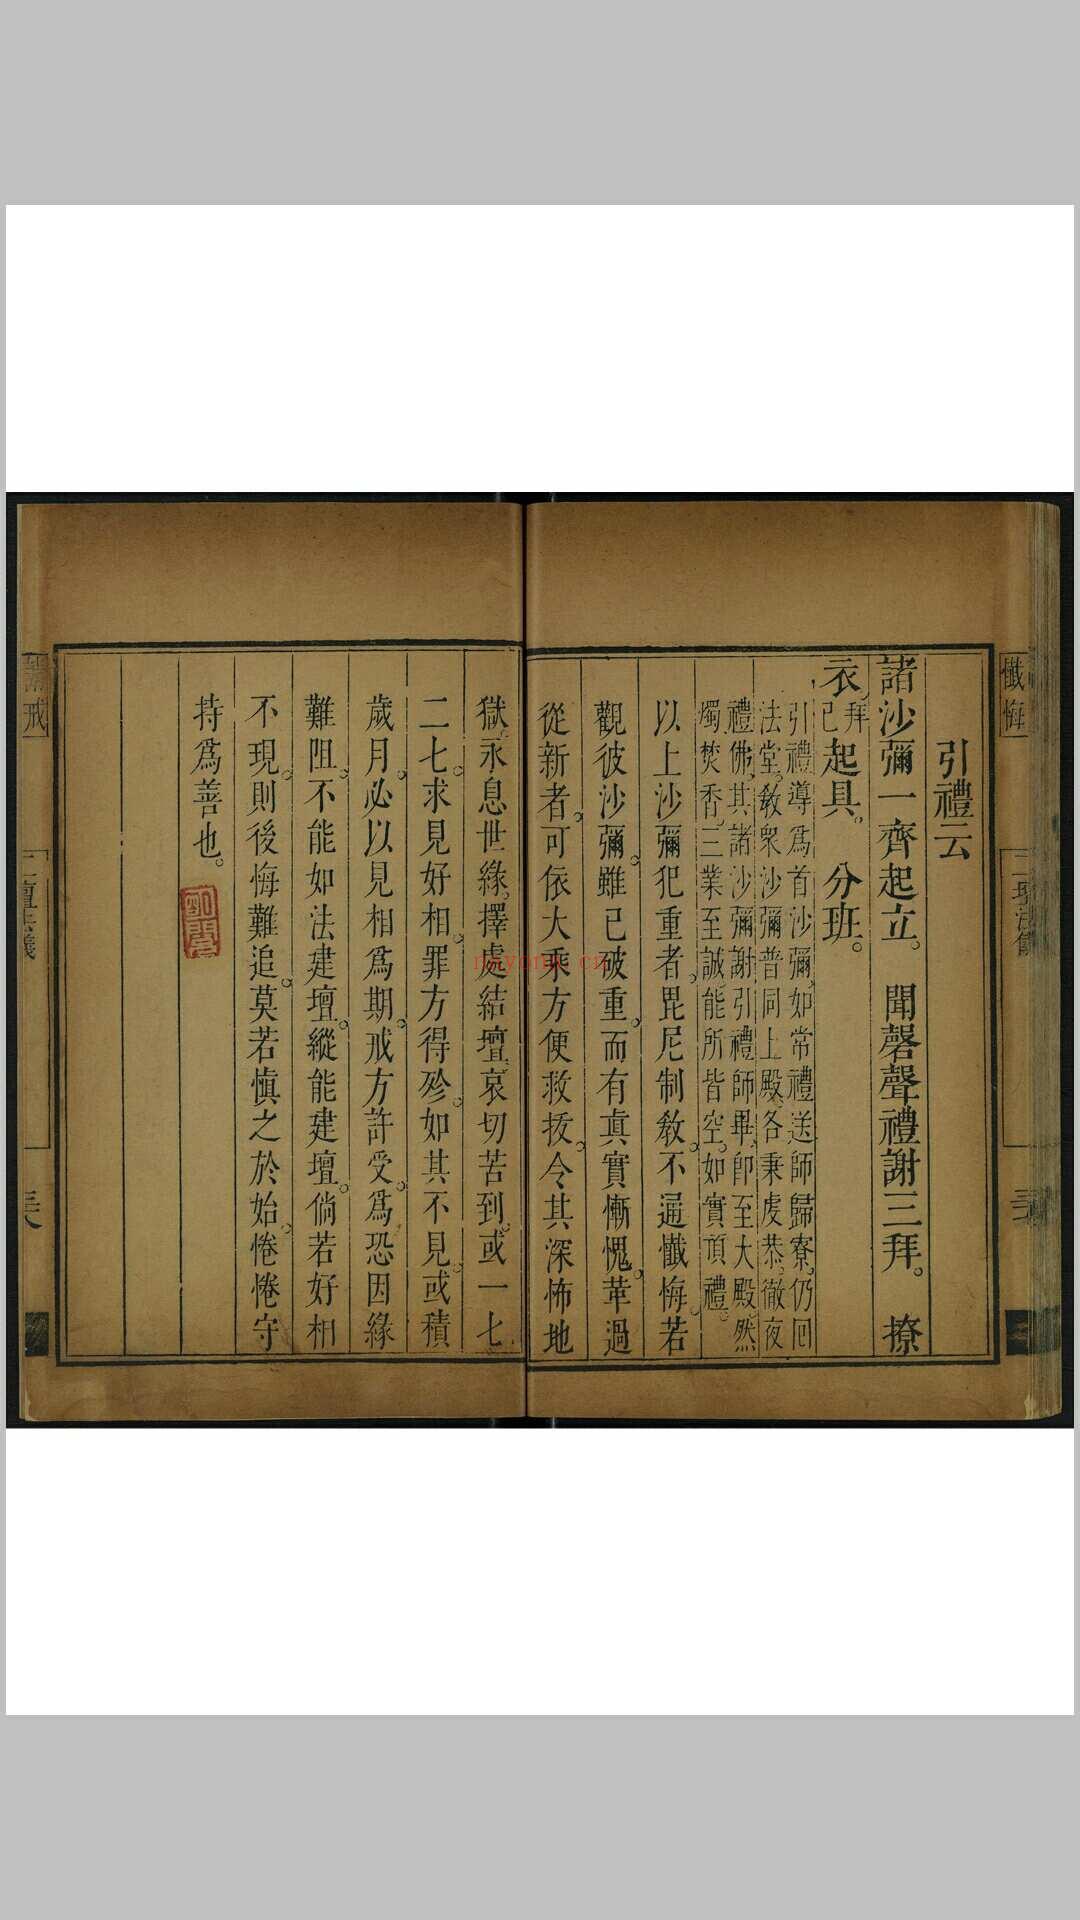 懺悔
引禮云
諸沙彌一齊起立。　聞磬聲禮謝三拜。　撩
衣拜已起具。　分班。
引禮導爲首沙彌如常禮送師歸寮。仍囘
法堂。敎衆沙彌普同上殿。各秉虔恭。徹夜
禮佛。其諸沙彌謝引禮師畢。卽至大殿。然
燭焚香。三業至誠。能所皆空。如實頂禮。
以上沙彌犯重者。毘尼制敎。不通懺悔。若
觀彼沙彌。雖已破重。而有眞實慚愧。革過
從新者。可依大乘方便救拔。令其深怖地
獄。永息世緣。擇處結壇。哀切苦到。或一七
二七。求見好相。罪方得殄。如其不見。或積
歲月。必以見相爲期。戒方許受。爲恐因緣
難阻。不能如法建壇。縱能建壇。倘若好相
不現。則後悔難追。莫若愼之於始。惓惓守
持爲善也。
戒
二壇法儀
nayona.cn